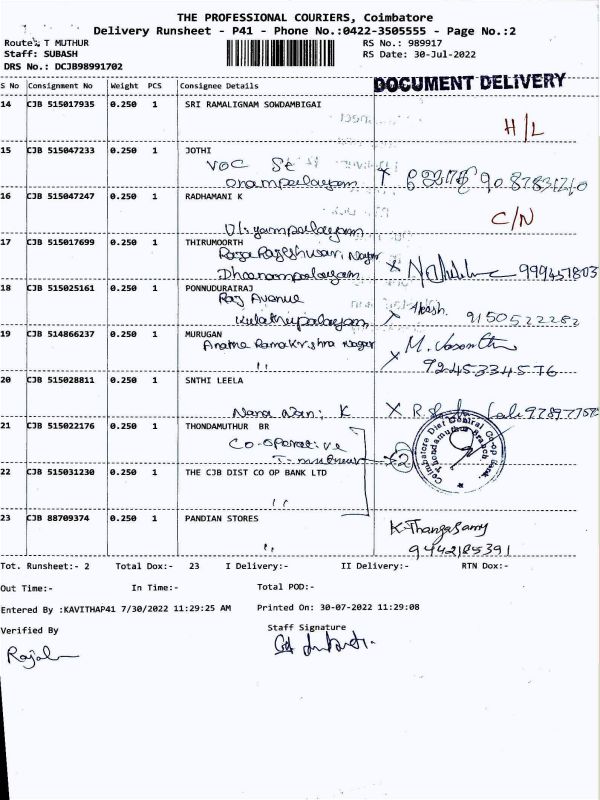 THE PROFESSIONAL COURIERS, Coimbatore
Delivery Runsheet - P41 - Phone No.:0422-3505555 - Page No.:2
Route: T MUTHUR RS No.: 989917
Staff: SUBASH RS Date: 30-Jul-2022
DRS No.: DCJB98991702
S No Consignment No Weight PCS Consignee Details DOCUMENT DELIVERY
14 CJB 515017935 0.250 1 SRI RAMALIGNAM SOWDAMBIGAI
H/L
15 CJB 515047233 0.250 1 JOTHI
VOC
9087831710
16 CJB 515047247 0.250 1 RADHAMANI K
C/N
17 CJB 515017699 0.250 1 THIRUMOORTH
Raja Rajeshwari Nagar
18 CJB 515025161 0.250 1 PONNUDURAIRAJ
Raj Avenue
9150522282
19 CJB 514866237 0.250 1 MURUGAN
Ramakrishna Nagar
M. Vasantha
9245334576
20 CJB 515028811 0.250 1 SNTHI LEELA
21 CJB 515022176 0.250 1 THONDAMUTHUR BR
Co-operative
2
Coimbatore Dist Central Co-op Bank. Thondamuthur Branch
22 CJB 515031230 0.250 1 THE CJB DIST CO OP BANK LTD
23 CJB 88709374 0.250 1 PANDIAN STORES
K. Thangasamy
9442185391
Tot. Runsheet:- 2 Total Dox:- 23 I Delivery:- II Delivery:- RTN Dox:-
Out Time:- In Time:- Total POD:-
Entered By :KAVITHAP41 7/30/2022 11:29:25 AM Printed On: 30-07-2022 11:29:08
Verified By Staff Signature